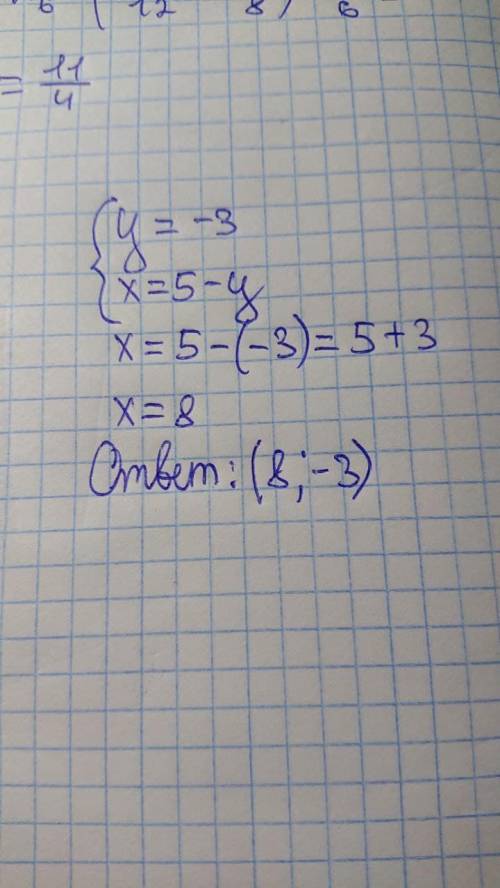 6 ( 12 8 ) 6
= 11/4
{ y = -3
x = 5 - y
x = 5 - (-3) = 5 + 3
x = 8
Ответ: (8; -3)